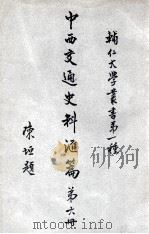 輔仁大學叢書第一種
中西交通史料滙篇第六冊
陳垣題